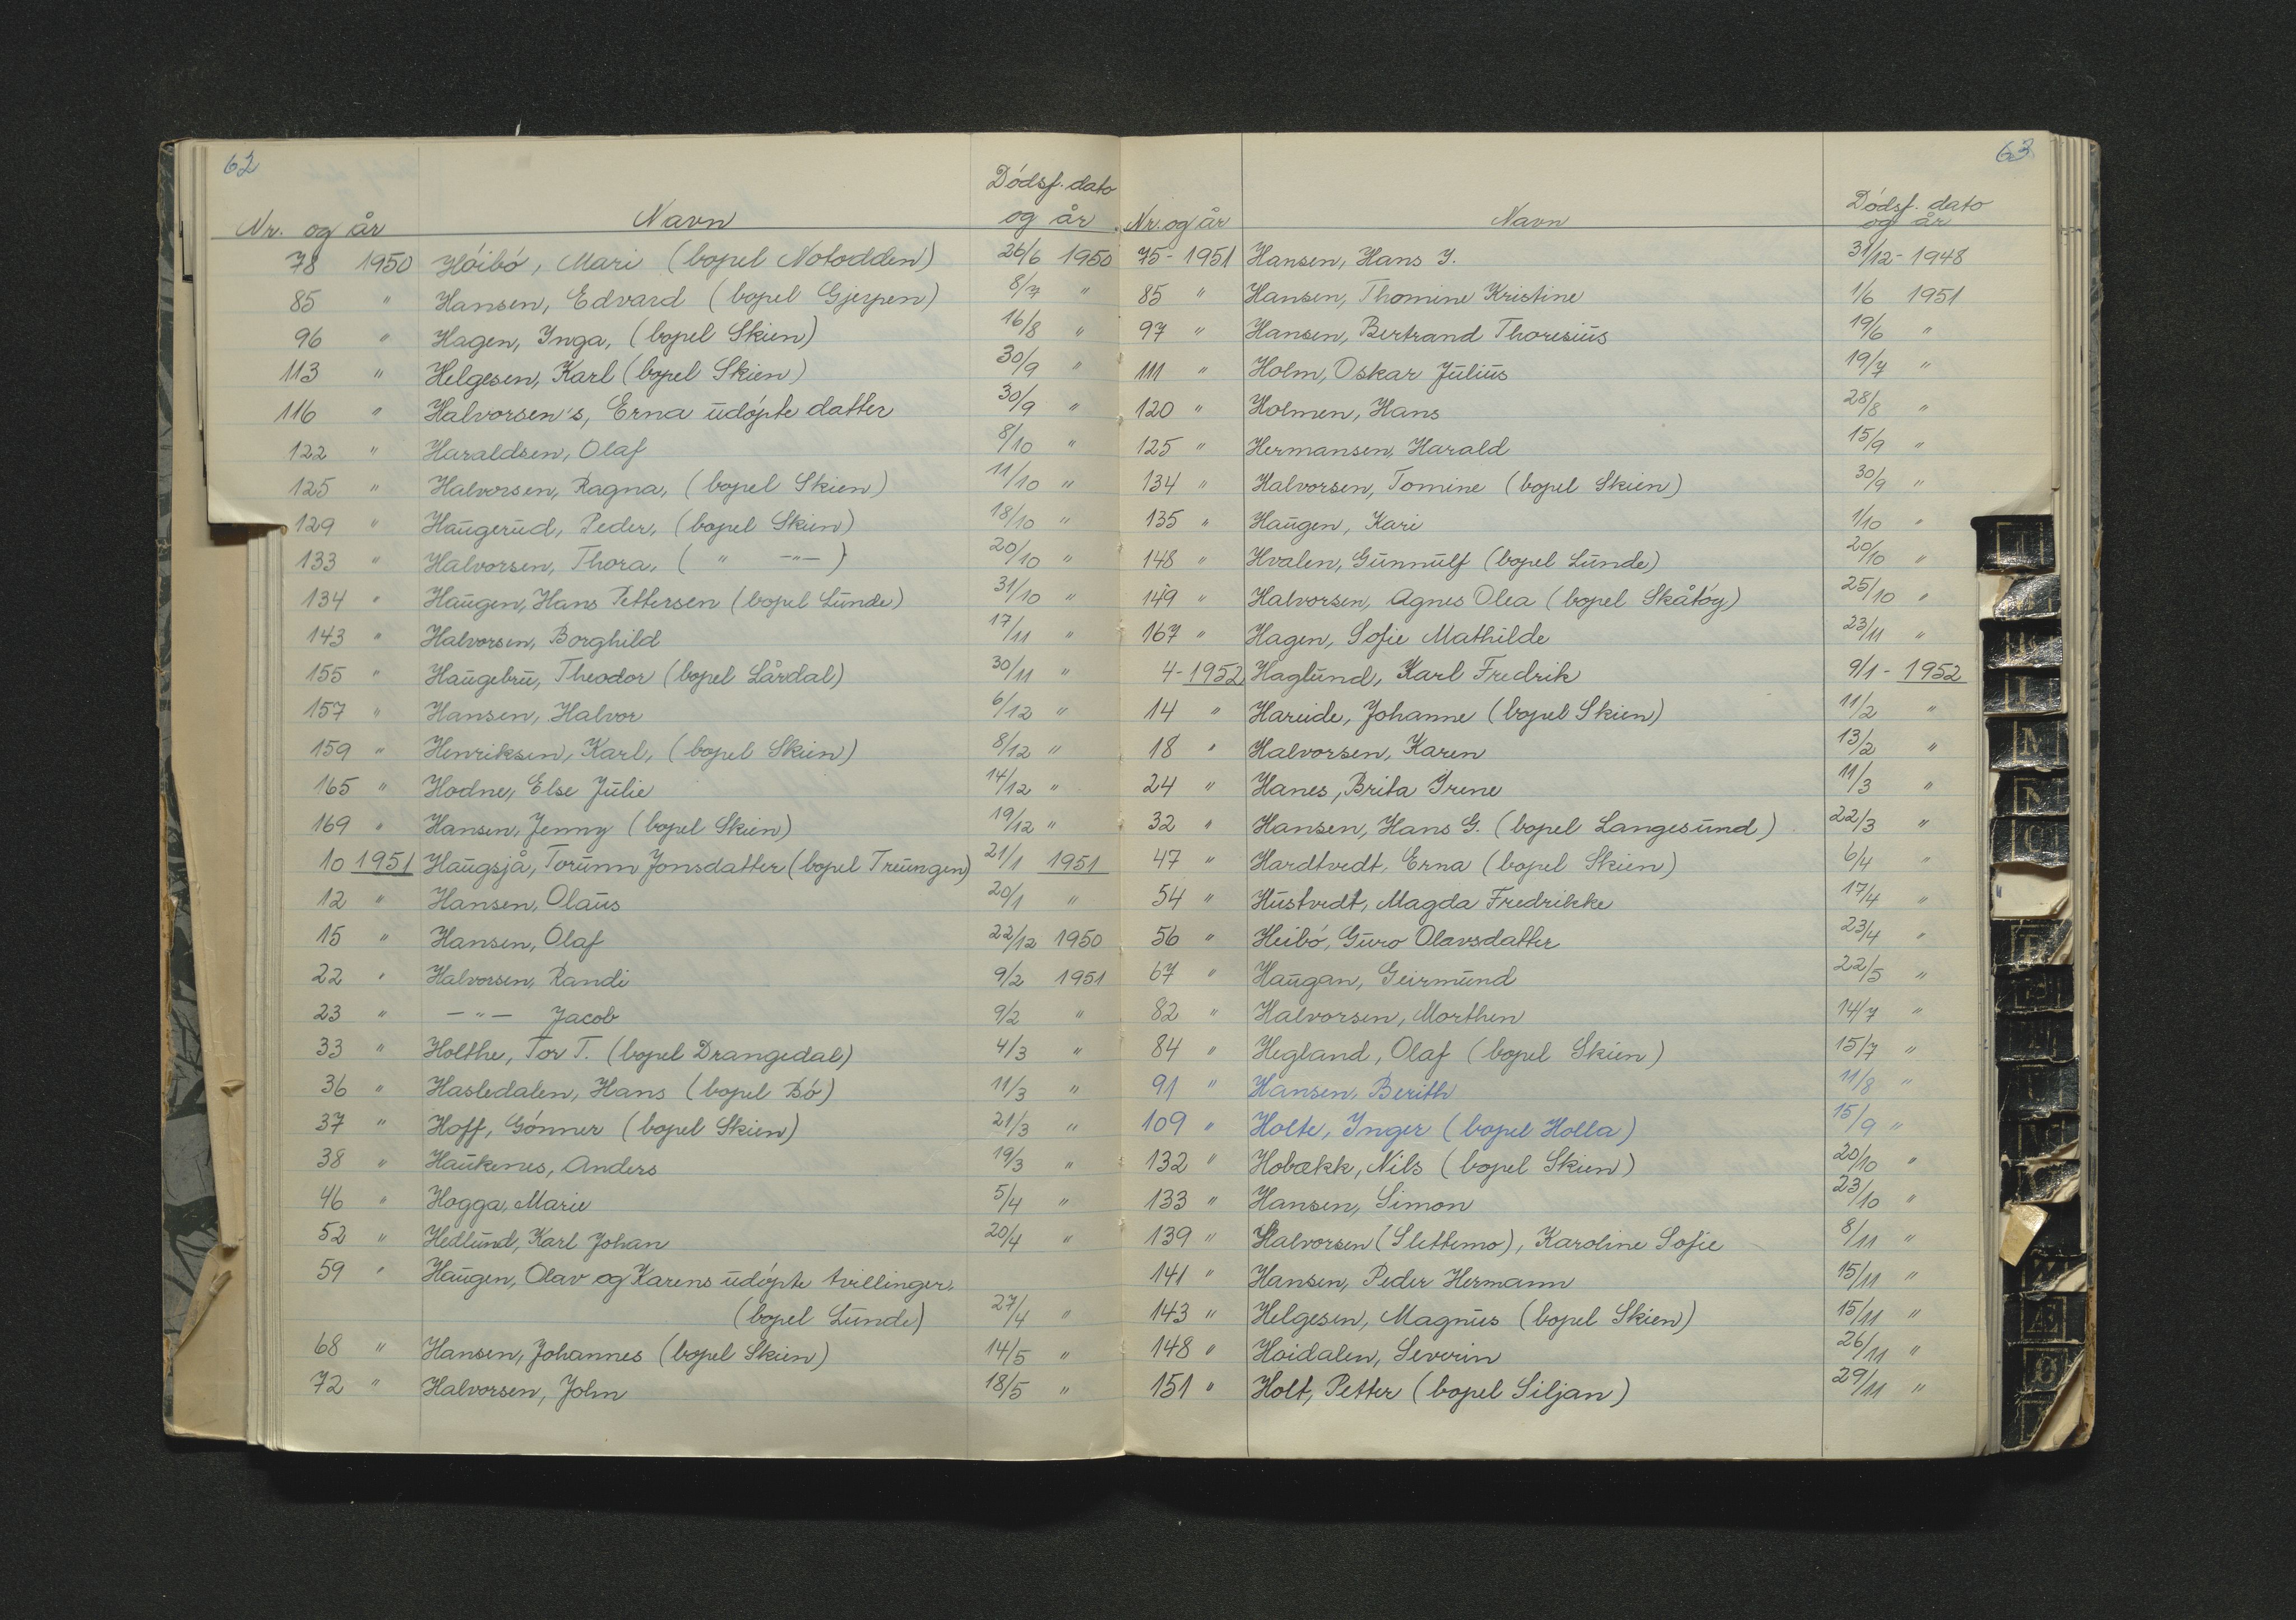 62
Dödsf. dato
Nr. og år Navn og år
78 1950 Höibö, Mari (bopel Notodden) 26/6 1950
85 " Hansen, Edvard (bopel Gjerpen) 8/7 "
96 " Hagen, Inga, (bopel Skien) 16/8 "
113 " Helgesen, Karl (bopel Skien) 30/9 "
116 " Halvorsen's, Erna udöpte datter 30/9 "
122 " Haraldsen, Olaf 8/10 "
125 " Halvorsen, Ragna, (bopel Skien) 11/10 "
129 " Haugerud, Peder, (bopel Skien) 18/10 "
133 " Halvorsen, Thora, ( " —"— ) 20/10 "
134 " Haugen, Hans Pettersen (bopel Lunde) 31/10 "
143 " Halvorsen, Borghild 17/11 "
155 " Haugebru, Theodor (bopel Lårdal) 30/11 "
157 " Hansen, Halvor 6/12 "
159 " Henriksen, Karl, (bopel Skien) 8/12 "
165 " Hodne, Else Julie 14/12 "
169 " Hansen, Jenny (bopel Skien) 19/12 "
10 1951 Haugsjå, Torunn Jonsdatter (bopel Treungen) 21/1 1951
12 " Hansen, Olaus 20/1 "
15 " Hansen, Olaf 22/12 1950
22 " Halvorsen, Randi 9/2 1951
23 " —"— Jacob 9/2 "
33 " Holthe, Tor T. (bopel Drangedal) 4/3 "
36 " Hasledalen, Hans (bopel Bö) 11/3 "
37 " Hoff, Gönner (bopel Skien) 21/3 "
38 " Haukenes, Anders 19/3 "
46 " Hogga, Marie 5/4 "
52 " Hedlund, Karl Johan 20/4 "
59 " Haugen, Olav og Karens udöpte tvillinger,
(bopel Lunde) 27/4 "
68 " Hansen, Johannes (bopel Skien) 14/5 "
72 " Halvorsen, John 18/5 "
63
Dödsf. dato
Nr. og år Navn og år
75 - 1951 Hansen, Hans I. 31/12 - 1948
85 " Hansen, Thomine Kristine 1/6 1951
97 " Hansen, Bertrand Thoresius 19/6 "
111 " Holm, Oskar Julius 19/7 "
120 " Holmen, Hans 28/8 "
125 " Hermansen, Harald 15/9 "
134 " Halvorsen, Tomine (bopel Skien) 30/9 "
135 " Haugen, Kari 1/10 "
148 " Hvalen, Gunnulf (bopel Lunde) 20/10 "
149 " Halvorsen, Agnes Olea (bopel Skåtöy) 25/10 "
167 " Hagen, Sofie Mathilde 23/11 "
4 - 1952 Haglund, Karl Fredrik 9/1 - 1952
14 " Hareide, Johanne (bopel Skien) 11/2 "
18 " Halvorsen, Karen 13/2 "
24 " Hanes, Brita Irene 11/3 "
32 " Hansen, Hans G. (bopel Langesund) 22/3 "
47 " Hardtvedt, Erna (bopel Skien) 6/4 "
54 " Hustvedt, Magda Fredrikke 17/4 "
56 " Heibö, Guro Olavsdatter 23/4 "
67 " Haugan, Geirmund 22/5 "
82 " Halvorsen, Morthen 14/7 "
84 " Hegland, Olaf (bopel Skien) 15/7 "
91 " Hansen, Berith 11/8 "
109 " Holte, Inger (bopel Holla) 15/9 "
132 " Hobækk, Nils (bopel Skien) 20/10 "
133 " Hansen, Simon 23/10 "
139 " Halvorsen (Slettemo), Karoline Sofie 8/11 "
141 " Hansen, Peder Hermann 15/11 "
143 " Helgesen, Magnus (bopel Skien) 15/11 "
148 " Hoidalen, Severin 26/11 "
151 " Holt, Petter (bopel Siljan) 29/11 "
M
N
O
P
U
Æ
Ø